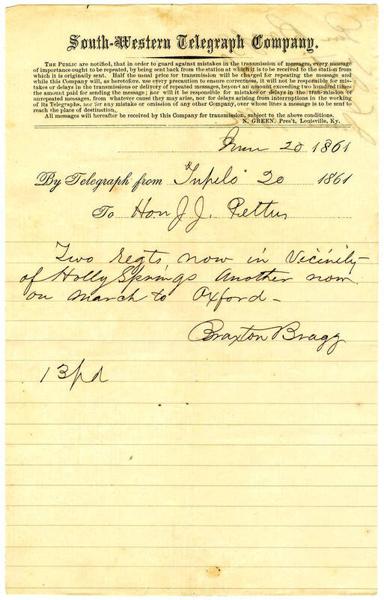 South-Western Telegraph Company.
THE PUBLIC are notified, that in order to guard against mistakes in the transmission of messages, every message
of importance ought to be repeated, by being sent back from the station at which it is to be received to the station from
which it is originally sent. Half the usual price for transmission will be charged for repeating the message and
while this Company will, as heretofore, use every precaution to ensure correctness, it will not be responsible for mis-
takes or delays in the transmissions or delivery of repeated messages, beyond an amount exceeding two hundred times
the amount paid for sending the message; nor will it be responsible for mistakes or delays in the transmission of
unrepeated messages, from whatever cause they may arise, nor for delays arising from interruptions in the working
of its Telegraphs, nor for any mistake or omission of any other Company, over whose lines a message is to be sent to
reach the place of destination.
All messages will hereafter be received by this Company for transmission, subject to the above conditions.
N. GREEN, Pres't, Louisville, Ky.
June 20 1861
By Telegraph from Tupelo 20 1861
To Hon J J. Pettus
Two Regts now in Vicinity
of Holly Springs Another now
on march to Oxford -
Braxton Bragg
13 pd